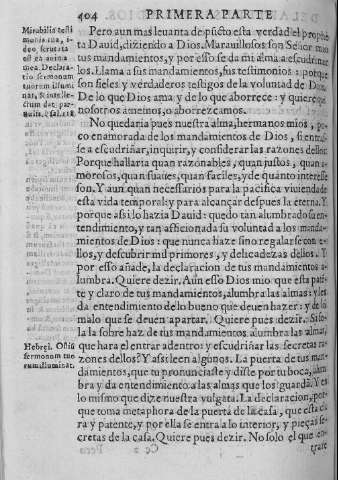 404 PRIMERA PARTE
Mirabilia testi
monia tua, i-
deo scrutata
est ea anima
mea. Declara-
tio sermonum
tuorum illumi
nat, & intelle-
ctum dat par-
uulis. Psal. 118
Pero aun mas leuanta de pũcto esta verdad el propheta
ta Dauid, diziendo a Dios. Marauillosos son Señor mio
tus mandamientos, y por esso se da mi alma a escudriñar
los. Llama a sus mandamientos, sus testimonios: porque
son fieles y verdaderos testigos de la voluntad de Dios.
De lo que Dios ama y de lo que aborrece: y quiere que
nosotros amemos, o aborrezcamos.
No quedaria pues nuestra alma, hermanos mios, po-
co enamorada de los mandamientos de Dios, si entras-
se a escudriñar, inquirir, y considerar las razones dellos.
Porque hallaria quan razonables, quan justos, quan a-
morosos, quan suaues, quan faciles, y de quanto interesse
son. Y aun quan necessarios para la pacifica viuienda de
esta vida temporal: y para alcançar despues la eterna. Y
porque assi lo hazia Dauid: quedo tan alumbrado su en-
tendimiento, y tan afficionada su voluntad a los manda-
mientos de Dios: que nunca haze sino regalarse con e-
llos, y descubrir mil primores, y delicadezas dellos. Y
por esso añade, la declaracion de tus mandamientos a-
lumbra. Quiere dezir. Aun esso Dios mio que esta paten-
te y claro de tus mandamientos, alumbra las almas: y les
da entendimiento de lo bueno que deuen hazer: y de lo
malo que se deuen apartar. Quiere pues dezir. Si so-
la la sobre haz de tus mandamientos alumbra las almas,
Hebrei. Ostiũ
sermonum tuo
rum illuminat.
que hara el entrar adentro y escudriñar las secretas ra-
zones dellos? Y assi leen algunos. La puerta de tus man-
damientos, que tu pronunciaste y diste por tu boca, alum-
bra y da entendimiento a las almas que los guarda. Y es
lo mismo que dize nuestra vulgata. La declaracion, por-
que toma metaphora de la puerta de la casa, que esta cla-
ra y patente, y por ella se entra a lo interior, y pieças se-
cretas de la casa. Quiere pues dezir. No solo el que en-
trare